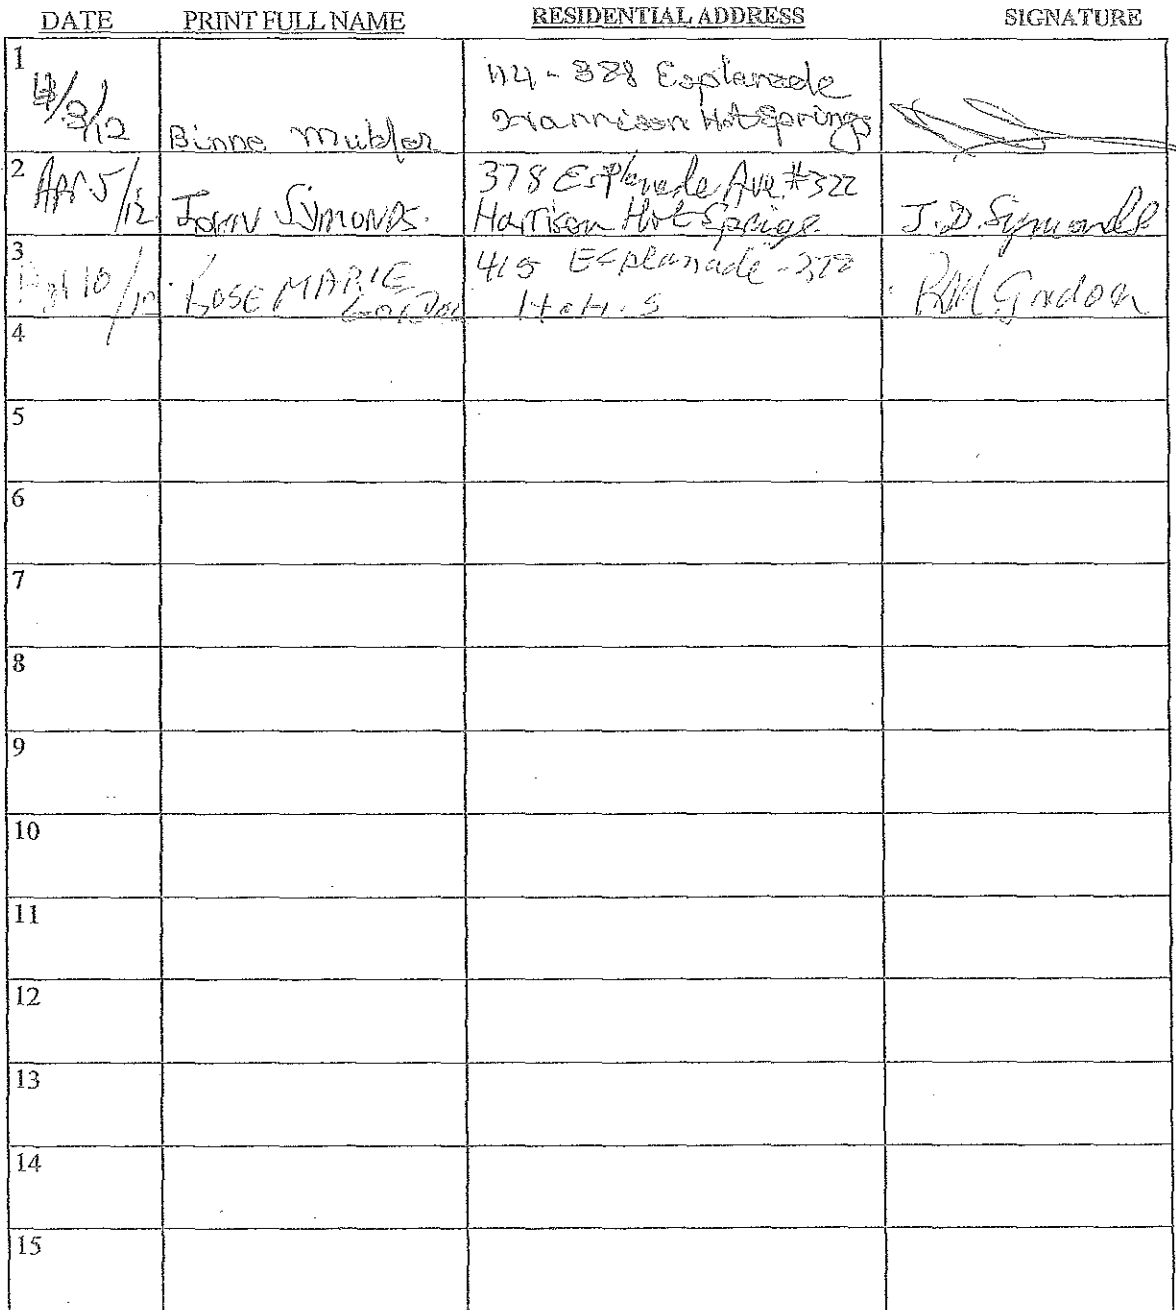 DATE PRINT FULL NAME RESIDENTIAL ADDRESS SIGNATURE
1
4/3/12 Binne 114 - 388 Esplanade
Harrison Hot Springs
2
Apr 5/12 John Symonds. 378 Esplanade Ave #322
Harrison Hot Springs J.D. Symonds
3
10/12 ROSE MARIE 415 Esplanade - 378
H.H.S RM Gordon
4
5
6
7
8
9
10
11
12
13
14
15